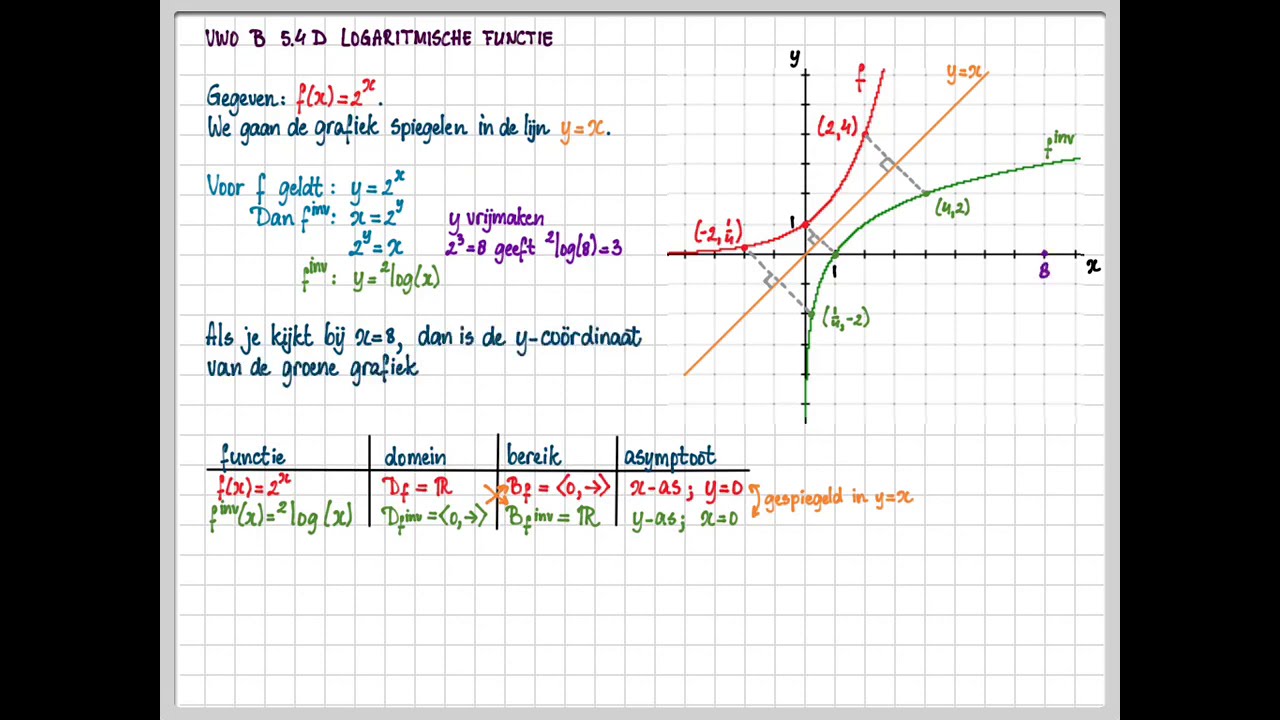 VWO B 5.4 D LOGARITMISCHE FUNCTIE
Gegeven: f(x) = 2ˣ.
We gaan de grafiek spiegelen in de lijn y = x.
Voor f geldt: y = 2ˣ
Dan fⁱⁿᵛ: x = 2ʸ y vrijmaken
2ʸ = x 2³ = 8 geeft ²log(8) = 3
fⁱⁿᵛ: y = ²log(x)
Als je kijkt bij x = 8, dan is de y-coördinaat
van de groene grafiek
y
f
y = x
(2,4)
fⁱⁿᵛ
(4,2)
1
(-2, 1/4)
1
8
x
(1/4, -2)
functie domein bereik asymptoot
f(x) = 2ˣ Df = ℝ Bf = ⟨0, →⟩ x-as; y = 0
fⁱⁿᵛ(x) = ²log(x) Dfⁱⁿᵛ = ⟨0, →⟩ Bfⁱⁿᵛ = ℝ y-as; x = 0
gespiegeld in y = x